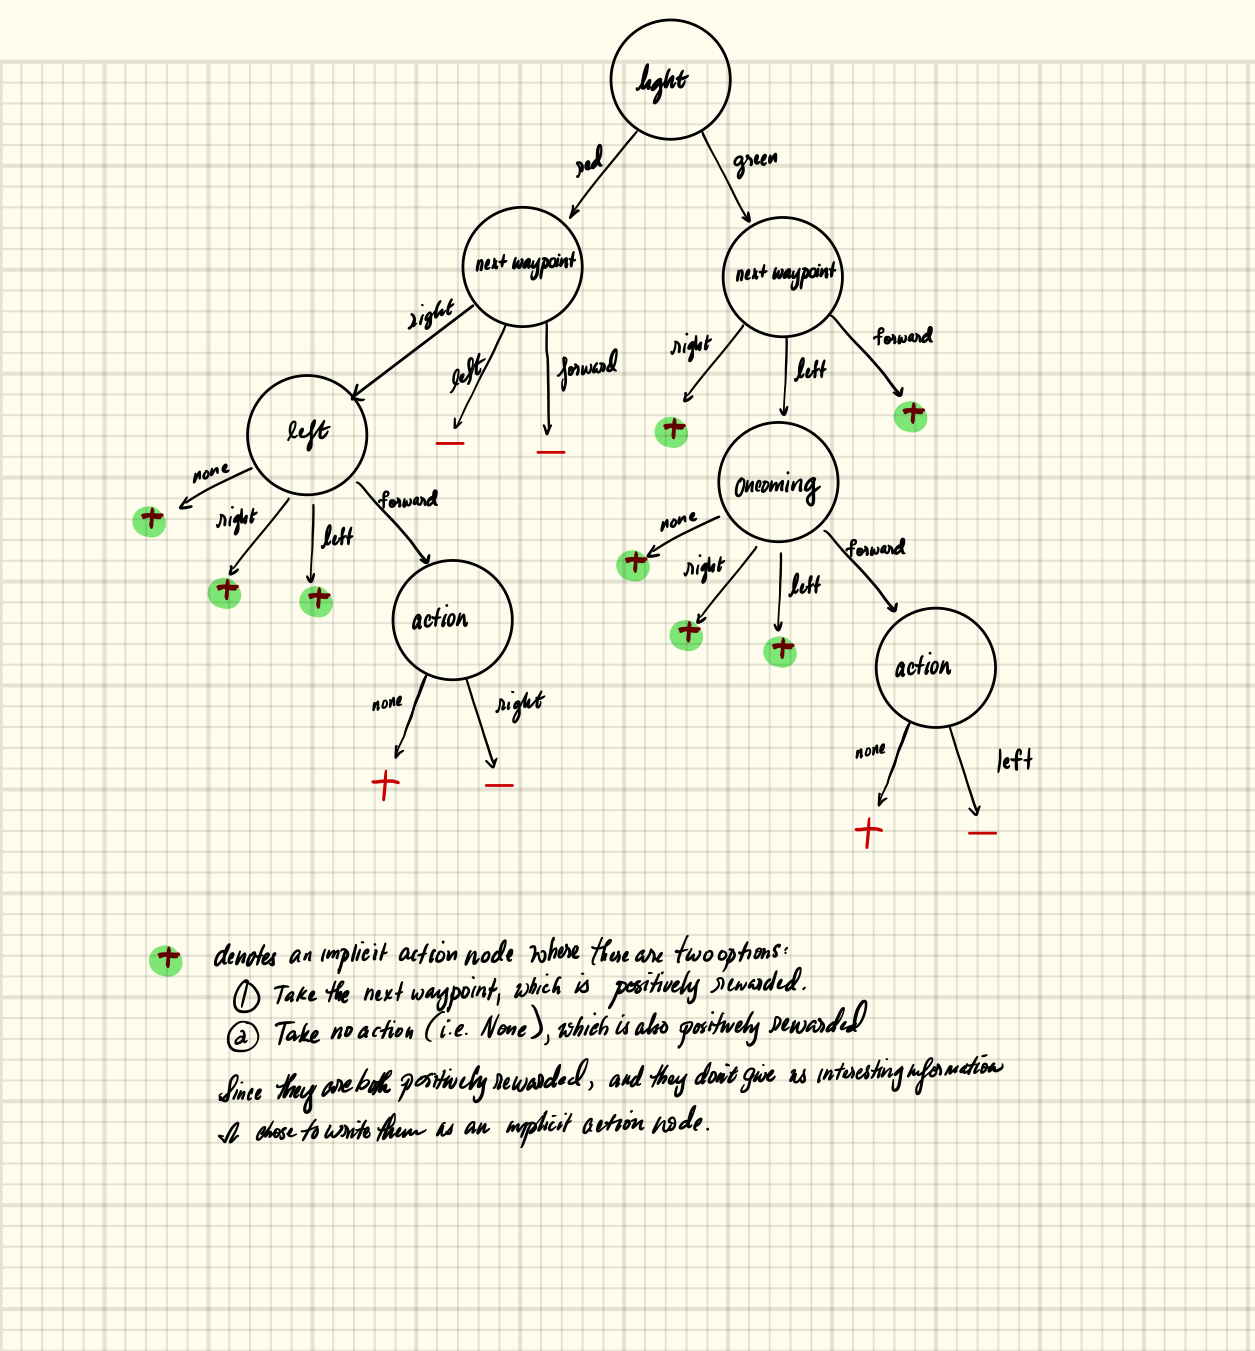 light
red
green
next waypoint
next waypoint
right
left
forward
right
left
forward
left
oncoming
none
right
left
forward
none
right
left
forward
+
+
+
+
+
+
+
+
−
−
action
action
none
right
none
left
+
−
+
−
+ denotes an implicit action node where there are two options:
① Take the next waypoint, which is positively rewarded.
② Take no action (i.e. None), which is also positively rewarded
Since they are both positively rewarded, and they don't give us interesting information
I chose to write them as an implicit action node.